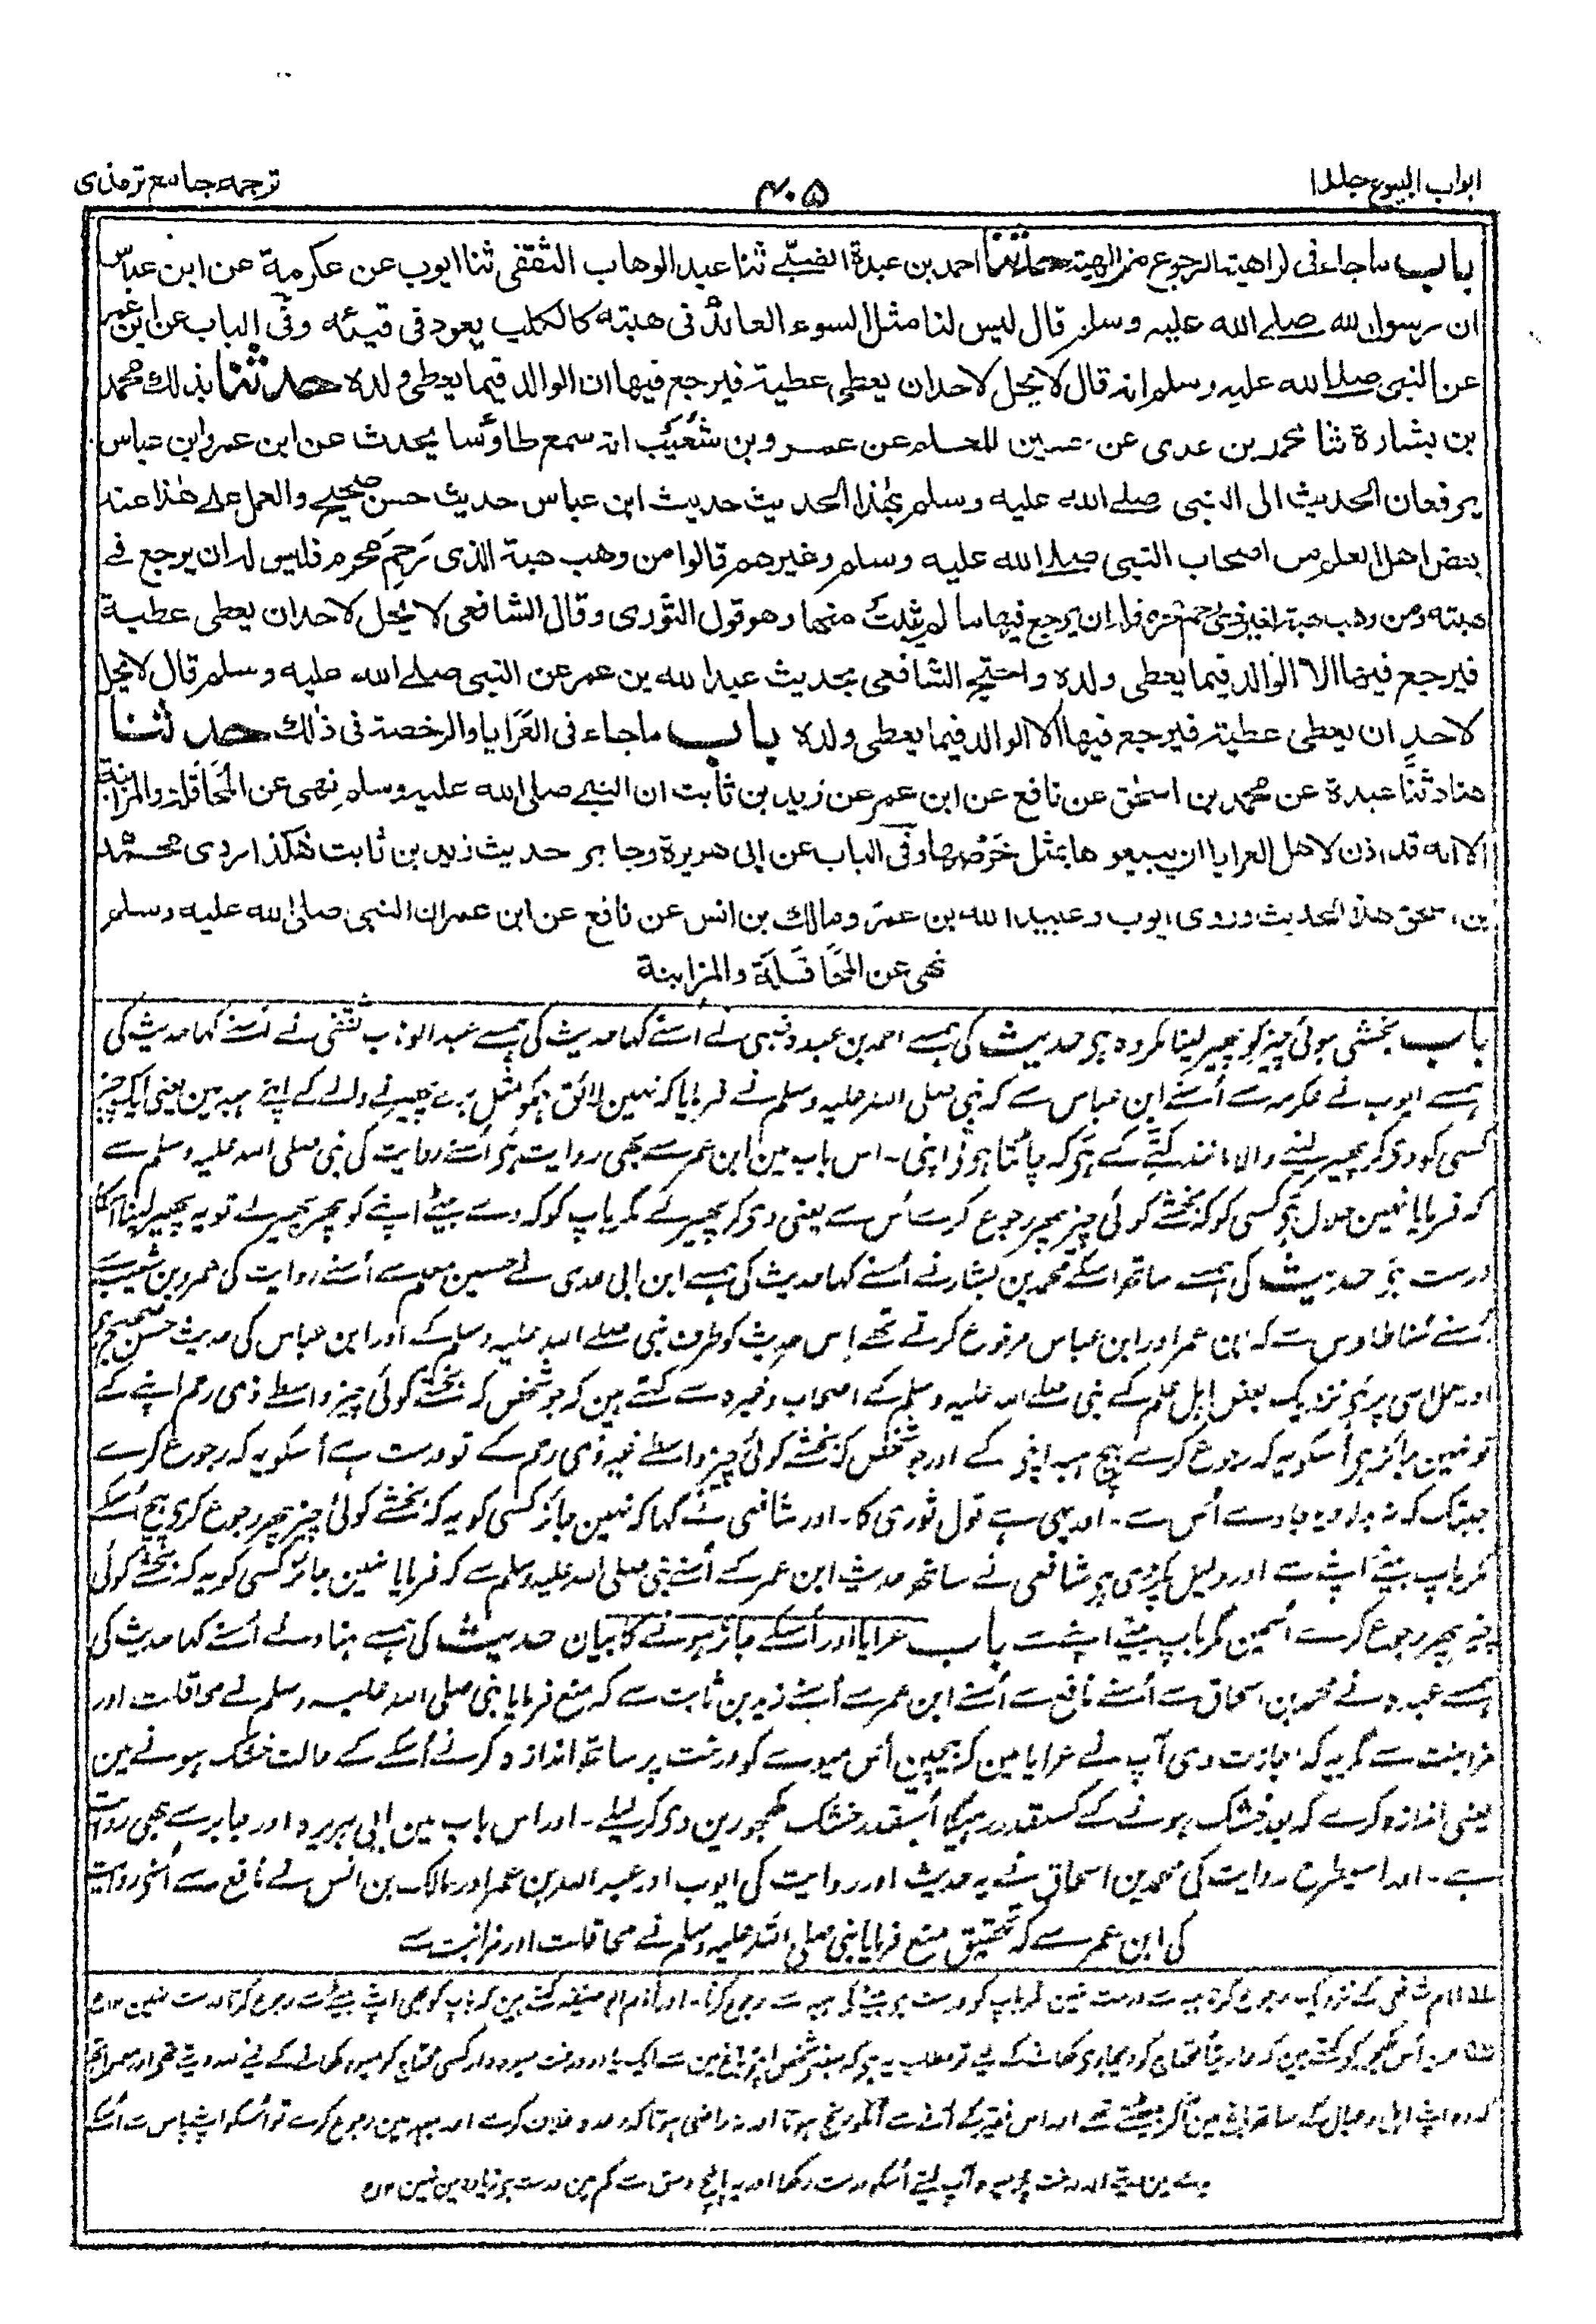 ابواب البیوع جلد ا
۴۰۵
ترجمه جامع ترمذی
باب ماجاء فی کراهیة الرجوع من الهبة حدثنا احمد بن عبدة الضبی ثنا عبد الوهاب الثقفی ثنا ایوب عن عکرمة عن ابن عباس
ان رسول الله صلے الله علیه وسلم قال لیس لنا مثل السوء العائد فی هبته کالکلب یعود فی قیئه وفی الباب عن ابن عمر
عن النبی صلے الله علیه وسلم انه قال لا یحل لاحد ان یعطی عطیة فیرجع فیها ان الوالد فیما یعطی ولده حدثنا بذلك محمد
بن بشارة ثنا محمد بن عدی عن حسین المعلم عن عمرو بن شعیب انه سمع طاوسا یحدث عن ابن عمر وابن عباس
یرفعان الحدیث الی النبی صلے الله علیه وسلم بهذا الحدیث حدیث ابن عباس حدیث حسن صحیح والعمل علی هذا عند
بعض اهل العلم من اصحاب النبی صلے الله علیه وسلم وغیرهم قالوا من وهب هبة الذی رحم محرم فلیس له ان یرجع فی
هبته ومن وهب هبة لغیر ذی رحم محرم فله ان یرجع فیها ما لم یثب منها وهو قول الثوری وقال الشافعی لا یحل لاحد ان یعطی عطیة
فیرجع فیها الا الوالد فیما یعطی ولده واحتج الشافعی بحدیث عبد الله بن عمر عن النبی صلے الله علیه وسلم قال لا یحل
لاحد ان یعطی عطیة فیرجع فیها الا الوالد فیما یعطی ولده باب ماجاء فی العرایا والرخصة فی ذلك حدثنا
هناد ثنا عبدة عن محمد بن اسحق عن نافع عن ابن عمر عن زید بن ثابت ان النبی صلی الله علیه وسلم نهی عن المحاقلة والمزابنة
الا انه قد اذن لاهل العرایا ان یبیعوها بمثل خرصها وفی الباب عن ابی هریرة وجابر حدیث زید بن ثابت هکذا روی محمد
بن اسحق هذا الحدیث وروی ایوب وعبید الله بن عمر ومالك بن انس عن نافع عن ابن عمر ان النبی صلی الله علیه وسلم
نهی عن المحاقلة والمزابنة
باب بخشی ہوئی چیز کو پھیر لینا مکروہ ہر حدیث کی ہمسے احمد بن عبدہ ضبی نے اُسنے کہا حدیث کی ہمسے عبد الوہاب ثقفی نے اُسنے کہا حدیث کی
ہمسے ایوب نے عکرمہ سے اُسنے ابن عباس سے کہ نبی صلی اللہ علیہ وسلم نے فرمایا کہ نہین لائق ہمکو مثل بدے پھیرنے والے کے اپنے ہبہ مین یعنی ایک چیز
کسی کو دی کر پھیر لینے والا مانند کتے کے ہر کہ چاٹتا ہر قے اپنی۔ اس باب مین ابن عمر سے بھی روایت ہر اُسنے روایت کی نبی صلی اللہ علیہ وسلم سے
کہ فرمایا نہین حلال ہر کسی کو کہ بخشے کوئی چیز پھر رجوع کرے اُس سے یعنی دی کر پھیر لے مگر باپ کو کہ دے بیٹے اپنے کو پھر پھیر لے تو یہ پھیر لینا اسکا
درست ہر حدیث کی ہمسے ساتھ اسکے محمد بن بشار نے اُسنے کہا حدیث کی ہمسے ابن ابی عدی نے حسین معلم سے اُسنے روایت کی عمرو بن شعیب سے
اُسنے سُنا طاوس سے کہ ابن عمر اور ابن عباس مرفوع کرتے تھے اِس حدیث کو طرف نبی صلے اللہ علیہ وسلم کے اور ابن عباس کی حدیث حسن صحیح ہر
اور عمل اسی پر ہر نزدیک بعض اہل علم کے نبی صلے اللہ علیہ وسلم کے اصحاب وغیرہ سے کہتے ہین کہ جو شخص کہ بخشے کوئی چیز واسطے ذی رحم اپنے کے
تو نہین جائز ہر اُسکو یہ کہ رجوع کرے بیچ ہبہ اپنی کے اور جو شخص کہ بخشے کوئی چیز واسطے غیر ذی رحم کے تو درست ہے اُسکو یہ کہ رجوع کرے
جبتک کہ نہ بدلا دیا جاوے اُس سے۔ اور یہی ہے قول ثوری کا۔ اور شافعی نے کہا کہ نہین جائز کسی کو یہ کہ بخشے کوئی چیز پھر رجوع کری بیچ اُسکے
مگر باپ بیٹے اپنے سے اور دلیل پکڑی ہر شافعی نے ساتھ حدیث ابن عمر کے اُسنے نبی صلی اللہ علیہ وسلم سے کہ فرمایا نہین جائز کسی کو یہ کہ بخشے کوئی
چیز پھر رجوع کرے اُسمین مگر باپ بیٹے اپنے سے باب عرایا اور اُسکے جائز ہونے کا بیان حدیث کی ہمسے ہناد نے اُسنے کہا حدیث کی
ہمسے عبدہ نے محمد بن اسحاق سے اُسنے نافع سے اُسنے ابن عمر سے اُسنے زید بن ثابت سے کہ منع فرمایا نبی صلی اللہ علیہ وسلم نے محاقلت اور
مزابنت سے مگر یہ کہ اجازت دی آپ نے عرایا مین کہ بیچین اُس میوے کو درخت پر ساتھ اندازہ کرنے اُسکے کے حالت خشک ہونے مین
یعنی اندازہ کرے کہ بعد خشک ہونے کے کسقدر رہیگا اُسقدر خشک کھجورین دی کر لیلے۔ اور اس باب مین ابی ہریرہ اور جابر سے بھی روایت
ہے۔ اور اسیطرح روایت کی محمد بن اسحاق نے یہ حدیث اور روایت کی ایوب اور عبید اللہ بن عمر اور مالک بن انس نے نافع سے اُسنے روایت
کی ابن عمر سے کہ تحقیق منع فرمایا نبی صلی اللہ علیہ وسلم نے محاقلت اور مزابنت سے
امام شافعی کے نزدیک رجوع کرنا ہبہ سے درست نہین مگر باپ کو درست ہر بیٹے کی ہبہ سے رجوع کرنا۔ اور امام ابو حنیفہ کہتے ہین کہ باپ کو بھی اپنے بیٹے سے رجوع کرنا درست نہین ۱۲
کو کہتے ہین کہ محتاج کو کھانے کے لیے تو مطلب یہ ہر کہ بعضے شخص اپنے باغ مین سے ایک یا دو درخت میوہ دار کسی محتاج کو میوہ کھانے کے لیے دیتے تھے اور
کہ وہ اپنے اہل و عیال کے ساتھ باغ مین تھے اور اس فقیر کے آنے سے اُنکو رنج ہوتا اور نہ راضی ہوتا کہ وعدہ خلاف کرے اور ہبہ مین رجوع کرے تو اُسکو اپنے پاس سے اُسکے
اور درخت آپ لیتے اُسکو درست رکھا اور یہ پانچ وسق سے کم مین درست ہر زیادہ مین نہین ۱۲